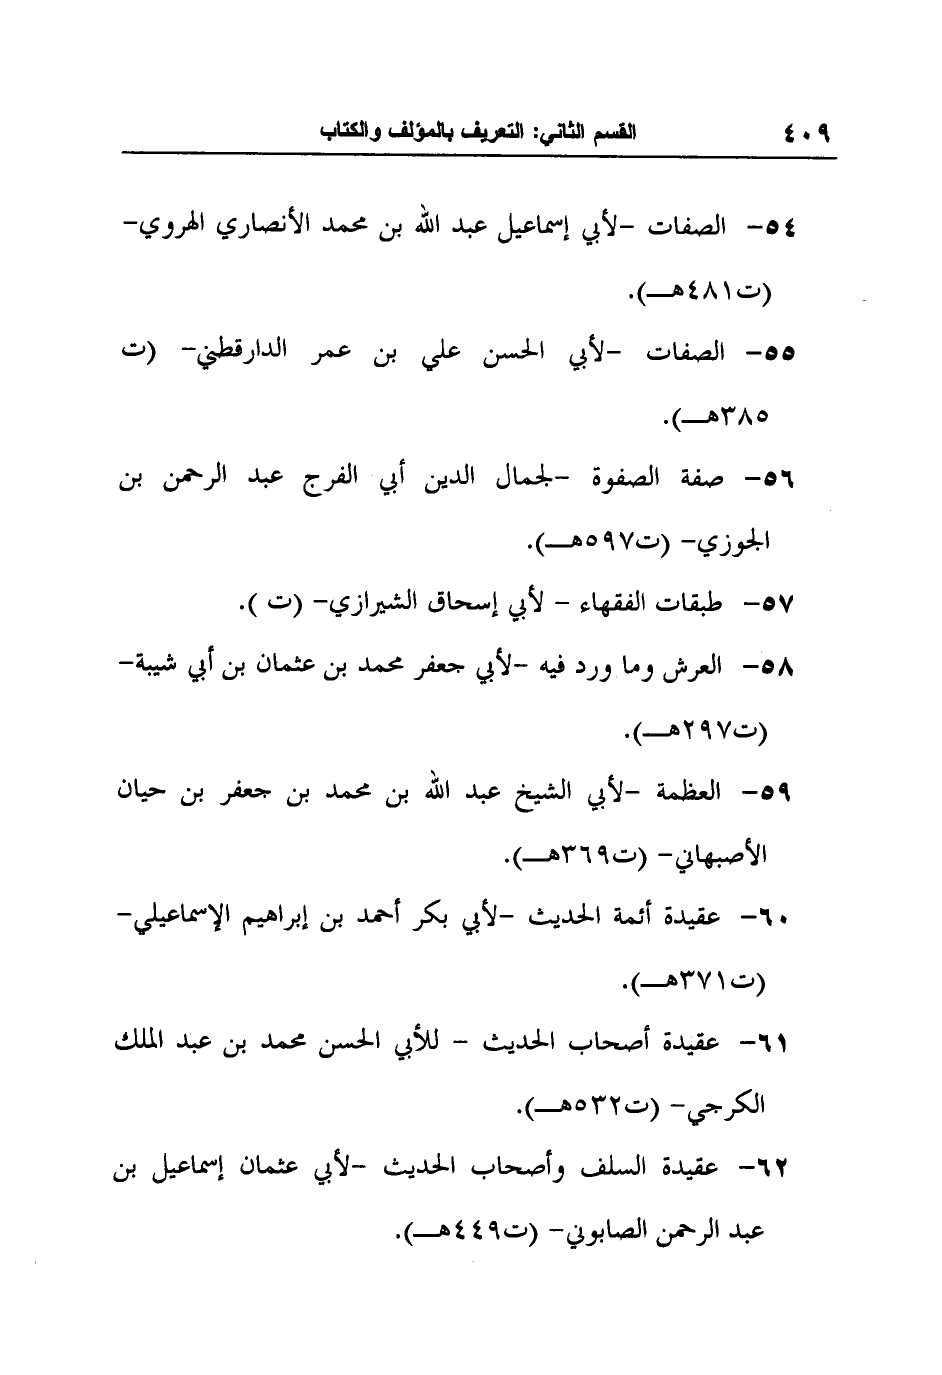 ٤٠٩ القسم الثاني: التعريف بالمؤلف والكتاب
٥٤- الصفات -لأبي إسماعيل عبد الله بن محمد الأنصاري الهروي-
(ت٤٨١هـ).
٥٥- الصفات -لأبي الحسن علي بن عمر الدارقطني- (ت
٣٨٥هـ).
٥٦- صفة الصفوة -لجمال الدين أبي الفرج عبد الرحمن بن
الجوزي- (ت٥٩٧هـ).
٥٧- طبقات الفقهاء - لأبي إسحاق الشيرازي- (ت ).
٥٨- العرش وما ورد فيه -لأبي جعفر محمد بن عثمان بن أبي شيبة-
(ت٢٩٧هـ).
٥٩- العظمة -لأبي الشيخ عبد الله بن محمد بن جعفر بن حيان
الأصبهاني- (ت٣٦٩هـ).
٦٠- عقيدة أئمة الحديث -لأبي بكر أحمد بن إبراهيم الإسماعيلي-
(ت٣٧١هـ).
٦١- عقيدة أصحاب الحديث - للأبي الحسن محمد بن عبد الملك
الكرجي- (ت٥٣٢هـ).
٦٢- عقيدة السلف وأصحاب الحديث -لأبي عثمان إسماعيل بن
عبد الرحمن الصابوني- (ت٤٤٩هـ).